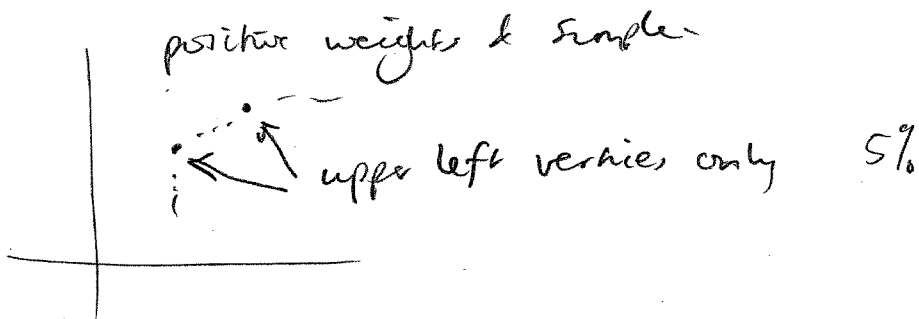 positive weights & simplex
upper left vertices only 5%